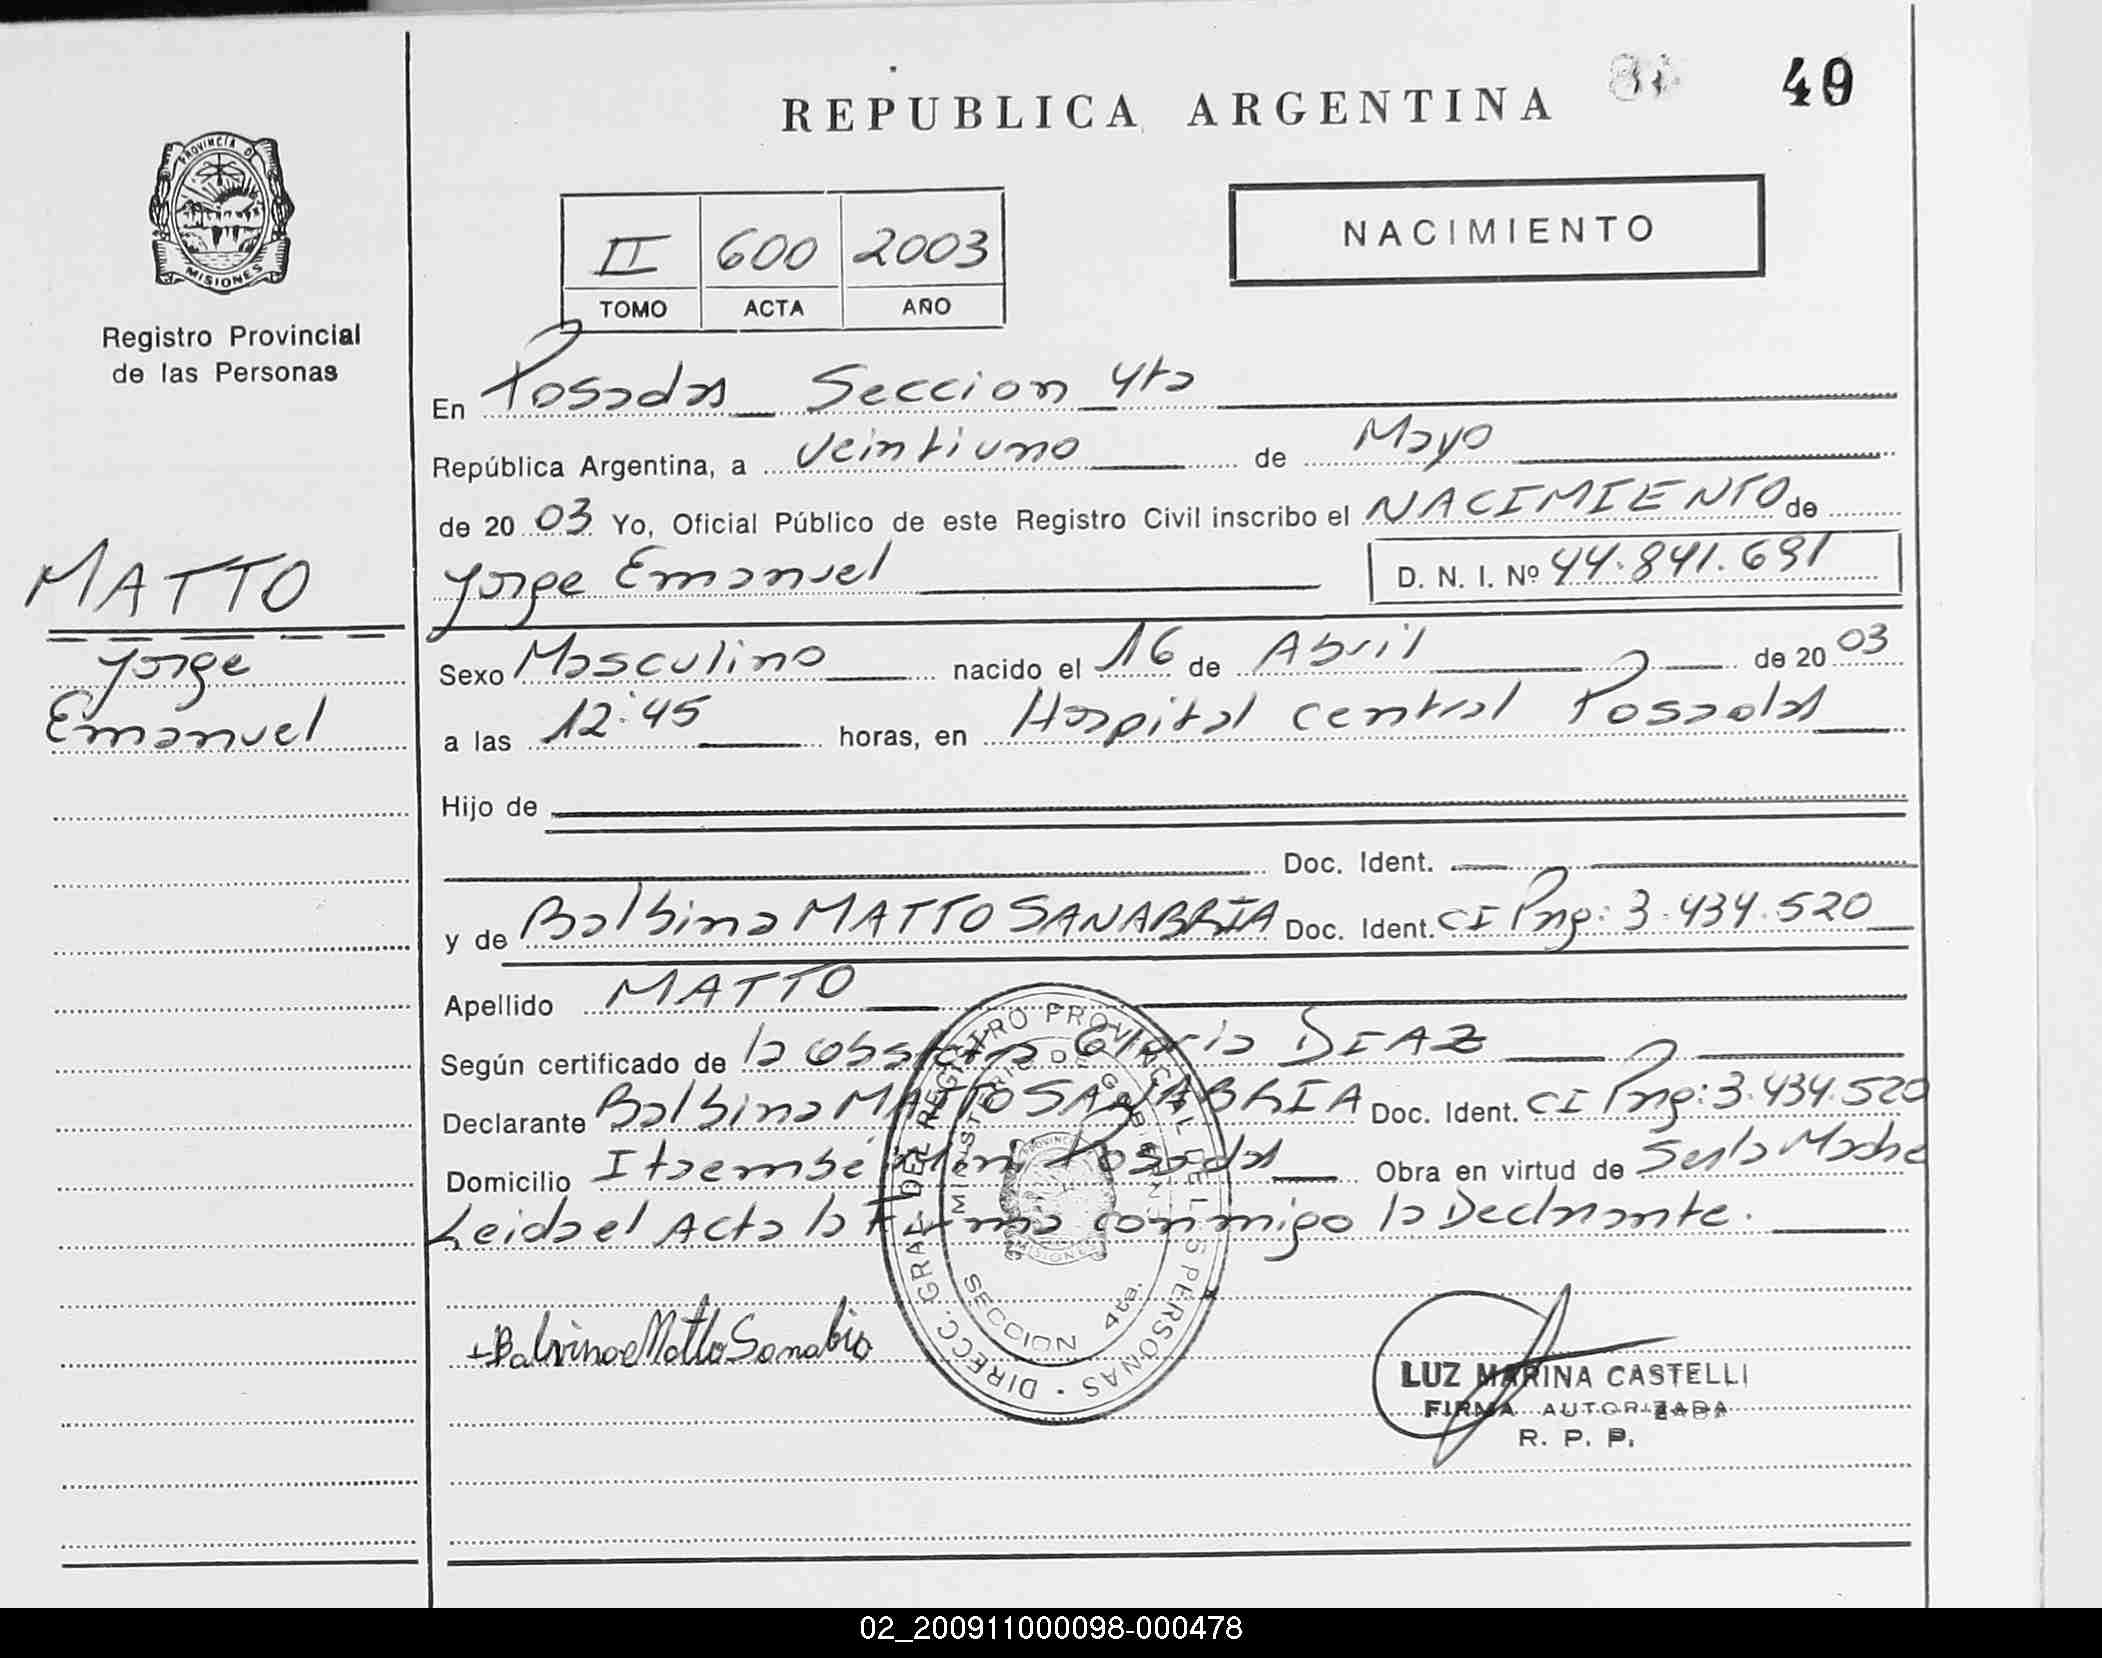 REPUBLICA ARGENTINA
49
PROVINCIA D
MISIONES
Registro Provincial
de las Personas
II 600 2003
TOMO ACTA AÑO
NACIMIENTO
En Posadas Seccion 4ta
República Argentina, a veintiuno de Mayo
de 20 03 Yo, Oficial Público de este Registro Civil inscribo el NACIMIENTO de
Jorge Emanuel D. N. I. Nº 44.841.691
MATTO
Jorge
Emanuel
Sexo Masculino nacido el 16 de Abril de 20 03
a las 12:45 horas, en Hospital Central Posadas
Hijo de
Doc. Ident.
y de Balbina MATTO SANABRIA Doc. Ident. CI Png: 3.434.520
Apellido MATTO
Según certificado de la Obstetra Gloria DIAZ
Declarante Balbina MATTO SANABRIA Doc. Ident. CI Png: 3.434.520
Domicilio Itaembé Mini Posadas Obra en virtud de Ser la Madre
Leida el Acta la Firma conmigo la Declarante.
DIRECC. GRAL. DEL REGISTRO PROVINCIAL DE LAS PERSONAS
MINISTERIO DE GOBIERNO
SECCION 4ta.
MISIONES
Balvina Matto Sanabria
LUZ MARINA CASTELLI
FIRMA AUTORIZADA
R. P. P.
02_200911000098-000478